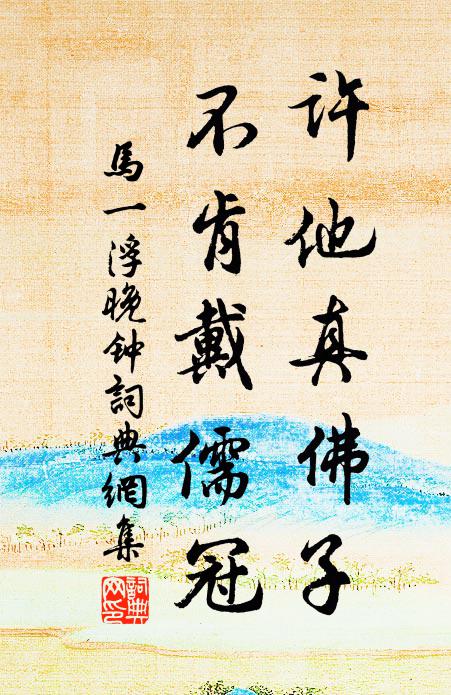 許他真佛子
不肯戴儒冠
馬一浮晚钟詞典網集
詞典網印